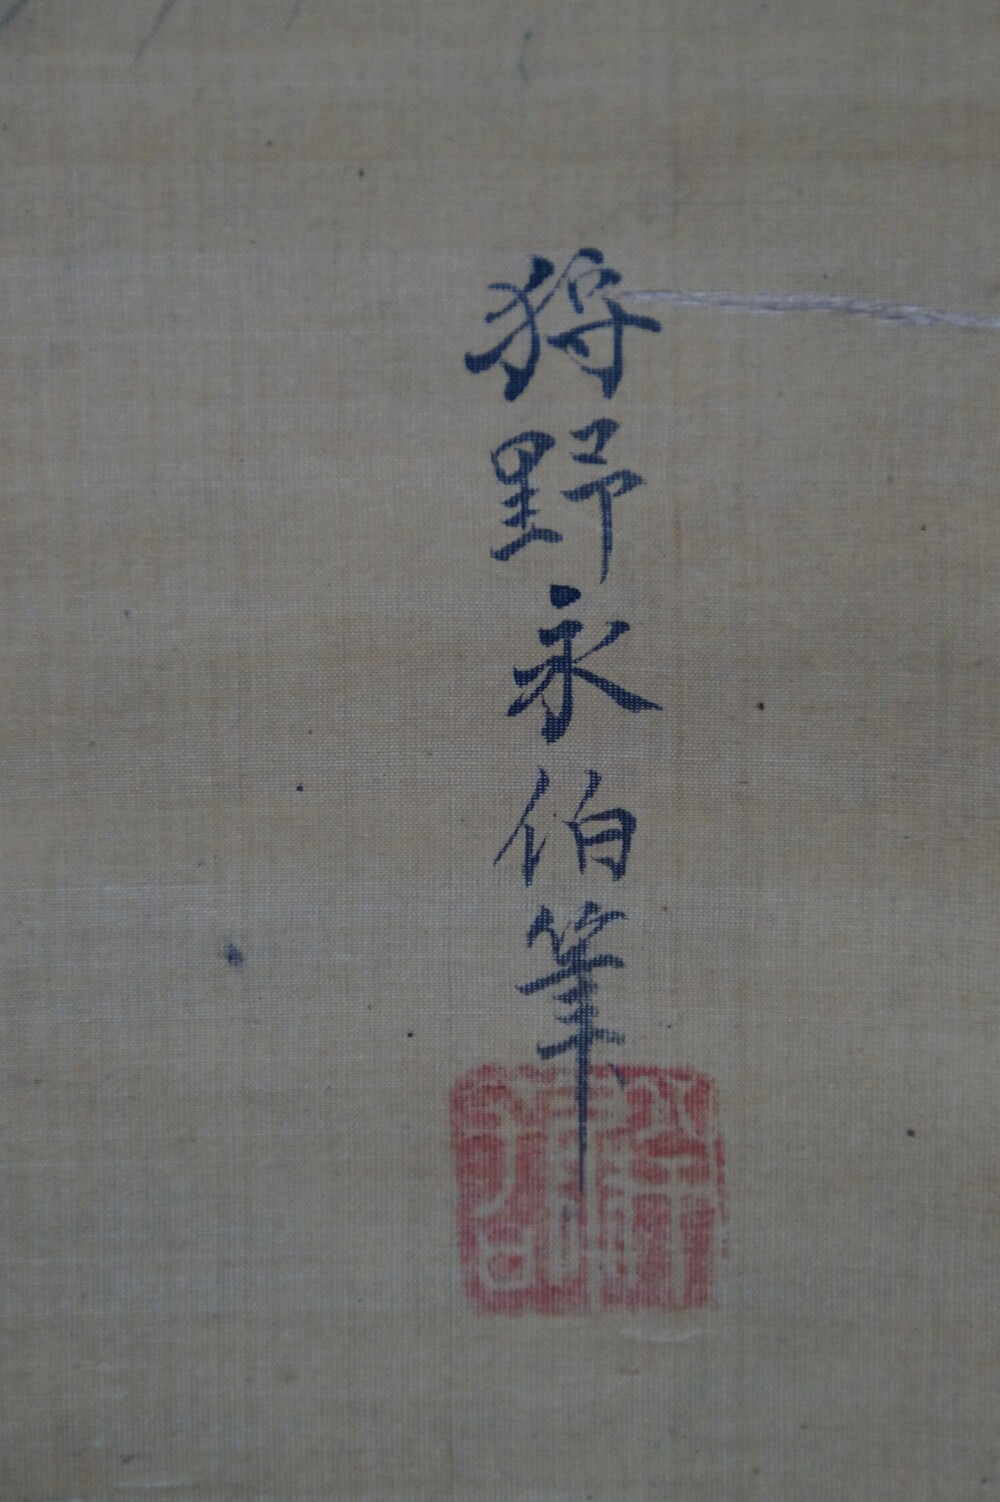 狩野永伯筆